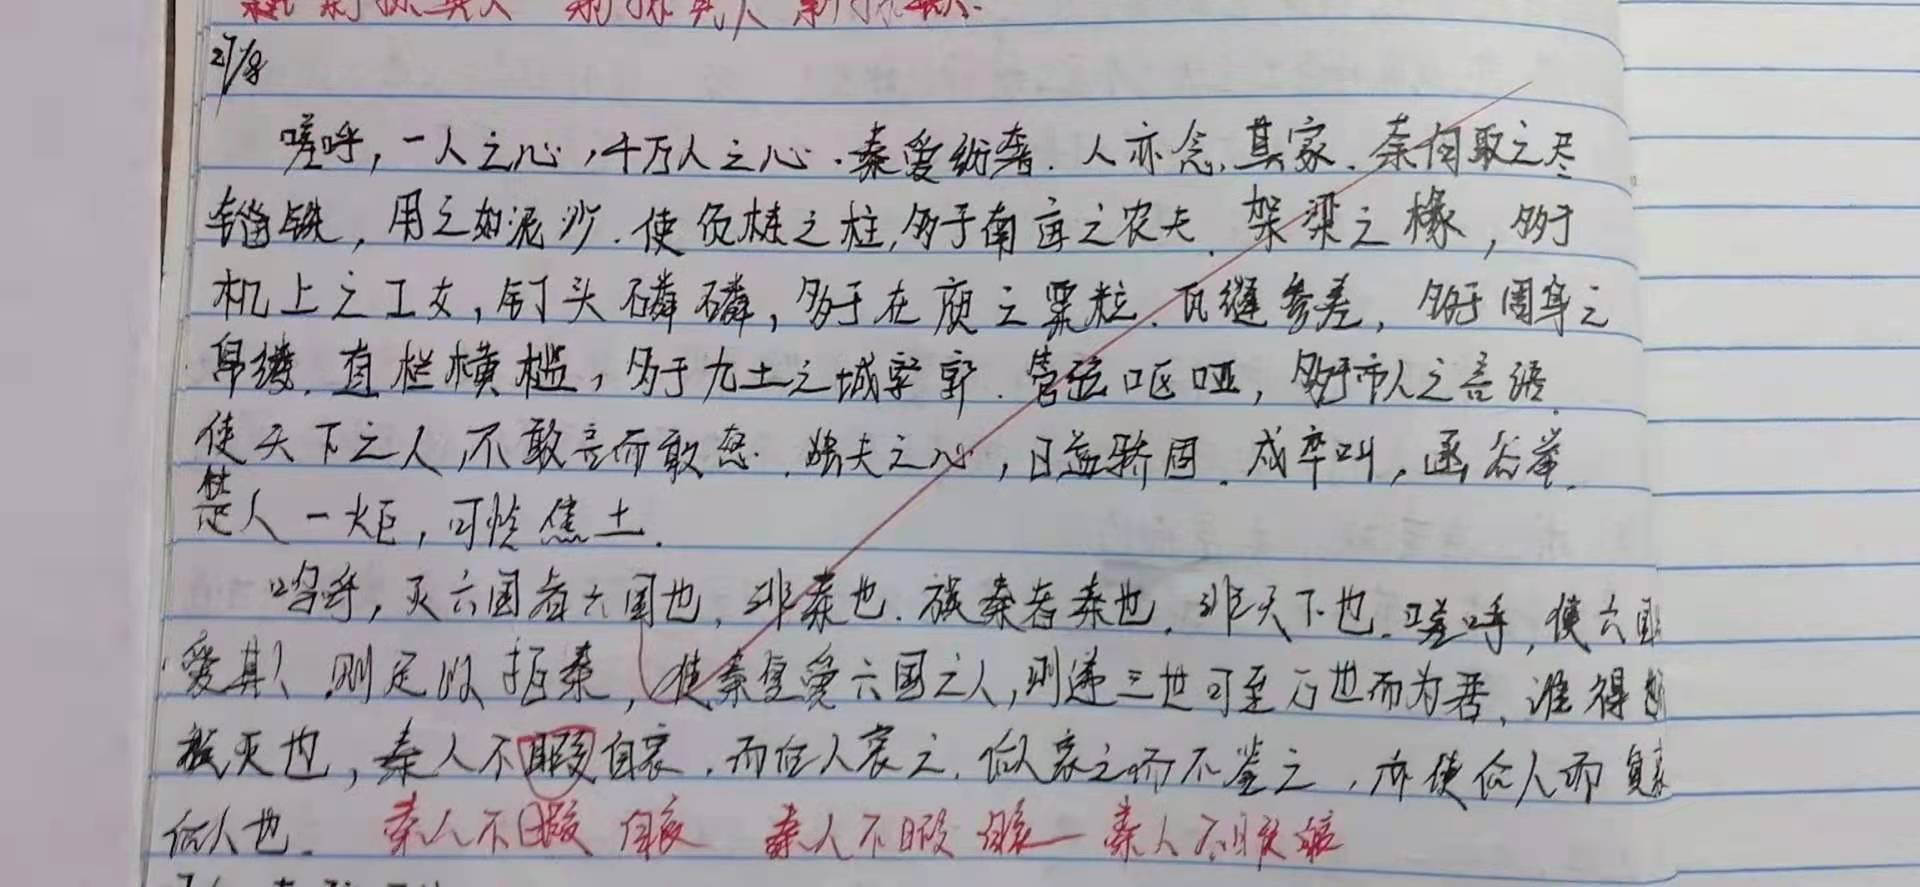 27/8
嗟呼，一人之心，千万人之心.秦爱纷奢.人亦念其家.奈何取之尽
锱铢，用之如泥沙.使负栋之柱,多于南亩之农夫.架梁之椽，多于
机上之工女，钉头磷磷，多于在庾之粟粒.瓦缝参差，多于周身之
帛缕.直栏横槛，多于九土之城郭.管弦呕哑，多于市人之言语.
使天下之人,不敢言而敢怒.独夫之心，日益骄固.戍卒叫，函谷举.
楚人一炬，可怜焦土.
呜呼，灭六国者六国也，非秦也.族秦者秦也.非天下也.嗟呼，使六国
爱其人则足以拒秦，使秦复爱六国之人,则递三世可至万世而为君.谁得
族灭也，秦人不暇自哀.而后人哀之.后人哀之而不鉴之，亦使后人而复哀
后人也.
秦人不暇自哀 秦人不暇自哀 秦人不暇自哀